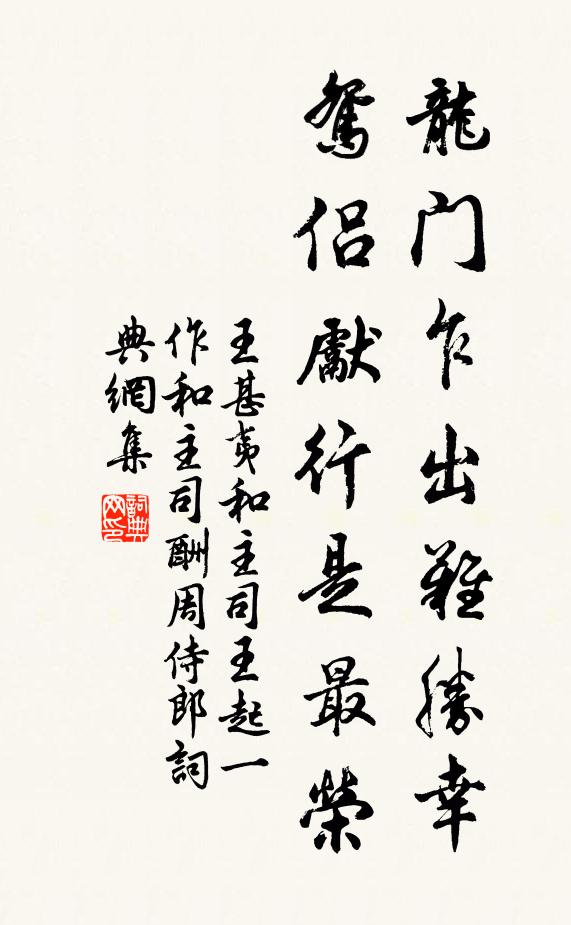 龍門乍出難勝幸
鴛侶獻行是最榮
王甚夷和主司王起一
作和主司酬周侍郎詞
典網集
詞典網印